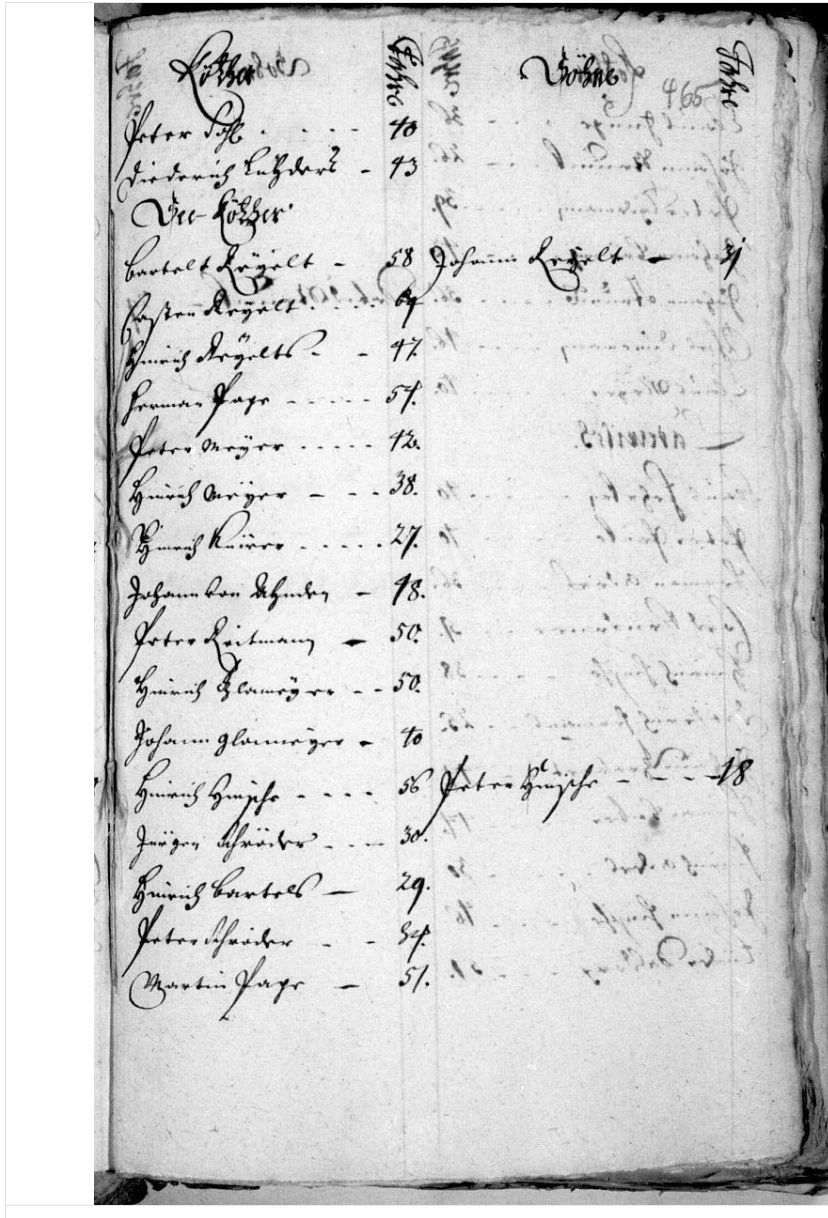 Köther Jahre Söhne Jahre
465
Peter Dohl - - - - 40
Diederich Lühders - 43
Köther
Bartelt Reyelt - 58 Johann Reyelt - 31
Casten Reyelt - - - - 64
Hinrich Reyelts - - 47.
Herman Page - - - - - 54.
Peter Meyer - - - - - 42.
Hinrich Meyer - - - 38.
Hinrich - - - - - 27.
Johann von - 48.
Peter Reitmann - 50.
Hinrich Glameyer - - 50.
Johann Glameyer - 40
Hinrich Hinsche - - - - 56 Peter Hinsche - - - - 18
Jürgen Schröder - - - 30.
Hinrich Bartels - 29.
Peter Schröder - - 34.
Martin Page - 51.